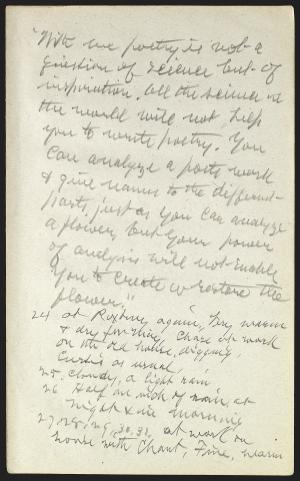 "With me poetry is not a
question of science but of
inspiration. All the science in
the world will not help
you to write poetry. You
can analyze a poet's work
& give names to the different
parts, just as you can analyze
a flower, but your power
of analysis will not enable
you to create or restore the
flower."
24 at Roxbury again, very warm
& dry for May. Chase at work
on the old house, digging.
Curtis as usual.
25. Cloudy, a light rain
26 Half an inch of rain, at
night & in morning
27, 28, 29, 30, 31, at work on
house with Chant, Fine, warm